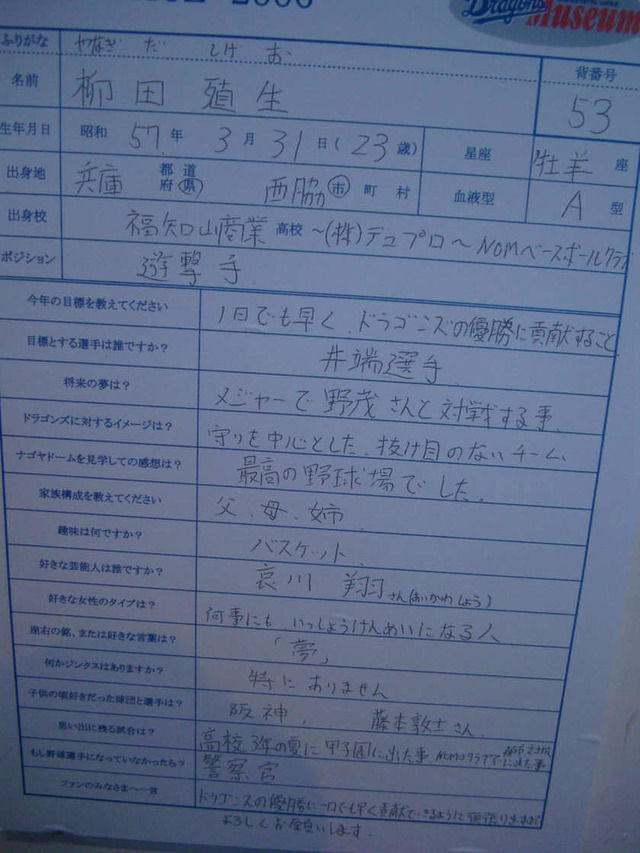 2006
Dragons Museum
ふりがな やなぎ だ しげ お
名前 柳田 殖生
背番号 53
生年月日 昭和 57年 3月 31日(23歳) 星座 牡羊座
出身地 兵庫 都道府県 西脇 市町村 血液型 A型
出身校 福知山商業 高校 〜(株)デュプロ〜NOMOベースボールクラブ
ポジション 遊撃手
今年の目標を教えてください 1日でも早く、ドラゴンズの優勝に貢献すること
目標とする選手は誰ですか? 井端選手
将来の夢は? メジャーで野茂さんと対戦する事、
ドラゴンズに対するイメージは? 守りを中心とした、抜け目のないチーム、
ナゴヤドームを見学しての感想は? 最高の野球場でした、
家族構成を教えてください 父、母、姉
趣味は何ですか? バスケット、
好きな芸能人は誰ですか? 哀川 翔さん(あいかわしょう)
好きな女性のタイプは? 何事にも いっしょうけんめいになる人
座右の銘、または好きな言葉は? 「夢」
何かジンクスはありますか? 特にありません
子供の頃好きだった球団と選手は? 阪神、 藤本敦士さん、
思い出に残る試合は? 高校3年の夏に甲子園に出た事 NOMOクラブで に出た事
もし野球選手になっていなかったら? 警察官
ファンのみなさまへ一言 ドラゴンズの優勝に一日でも早く貢献できるように頑張りますので
よろしくお願いします。